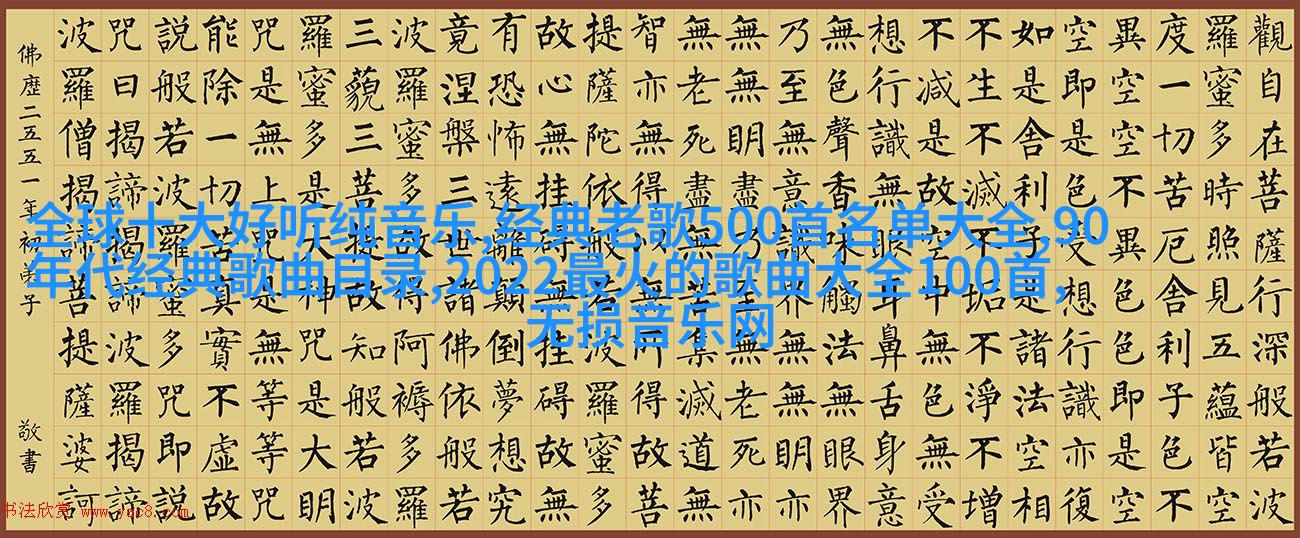 觀自在菩薩行深般若波
羅蜜多時照見五蘊皆空
度一切苦厄舎利子色不
異空空不異色色即是空
空即是色受想行識亦復
如是舎利子是諸法空相
不生不滅不垢不淨不增
不减是故空中無色無受
想行識無眼耳鼻舌身意
無色聲香味觸法無眼界
乃至無意識界無無明亦
無無明盡乃至無老死亦
無老死盡無苦集滅道無
智亦無得以無所得故菩
提薩陀依般若波羅蜜多
故心無挂碍無挂碍故無
有恐怖遠離顛倒夢想究
竟涅槃三世諸佛依般若
波羅蜜多故得阿褥多羅
三藐三菩提故知般若波
羅蜜多是大神咒是大明
咒是無上咒是無等等咒
能除一切苦真實不虛故
説般若波羅蜜多咒即説
咒曰揭諦揭諦波羅揭諦
波羅僧揭諦菩提薩婆訶
佛歷二五五一年初弟子
敬書
全球十大好听纯音乐,经典老歌500首名单大全,90
年代经典歌曲目录,2022最火的歌曲大全100首,
无损音乐网
书法欣赏 www.yac8.com